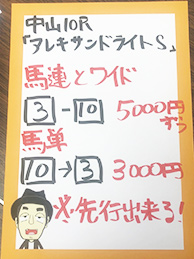 中山10R
「アレキサンドライトS」
馬連とワイド
3-10 5000円
ずつ
馬単
10→3 3000円
※先行出来る!